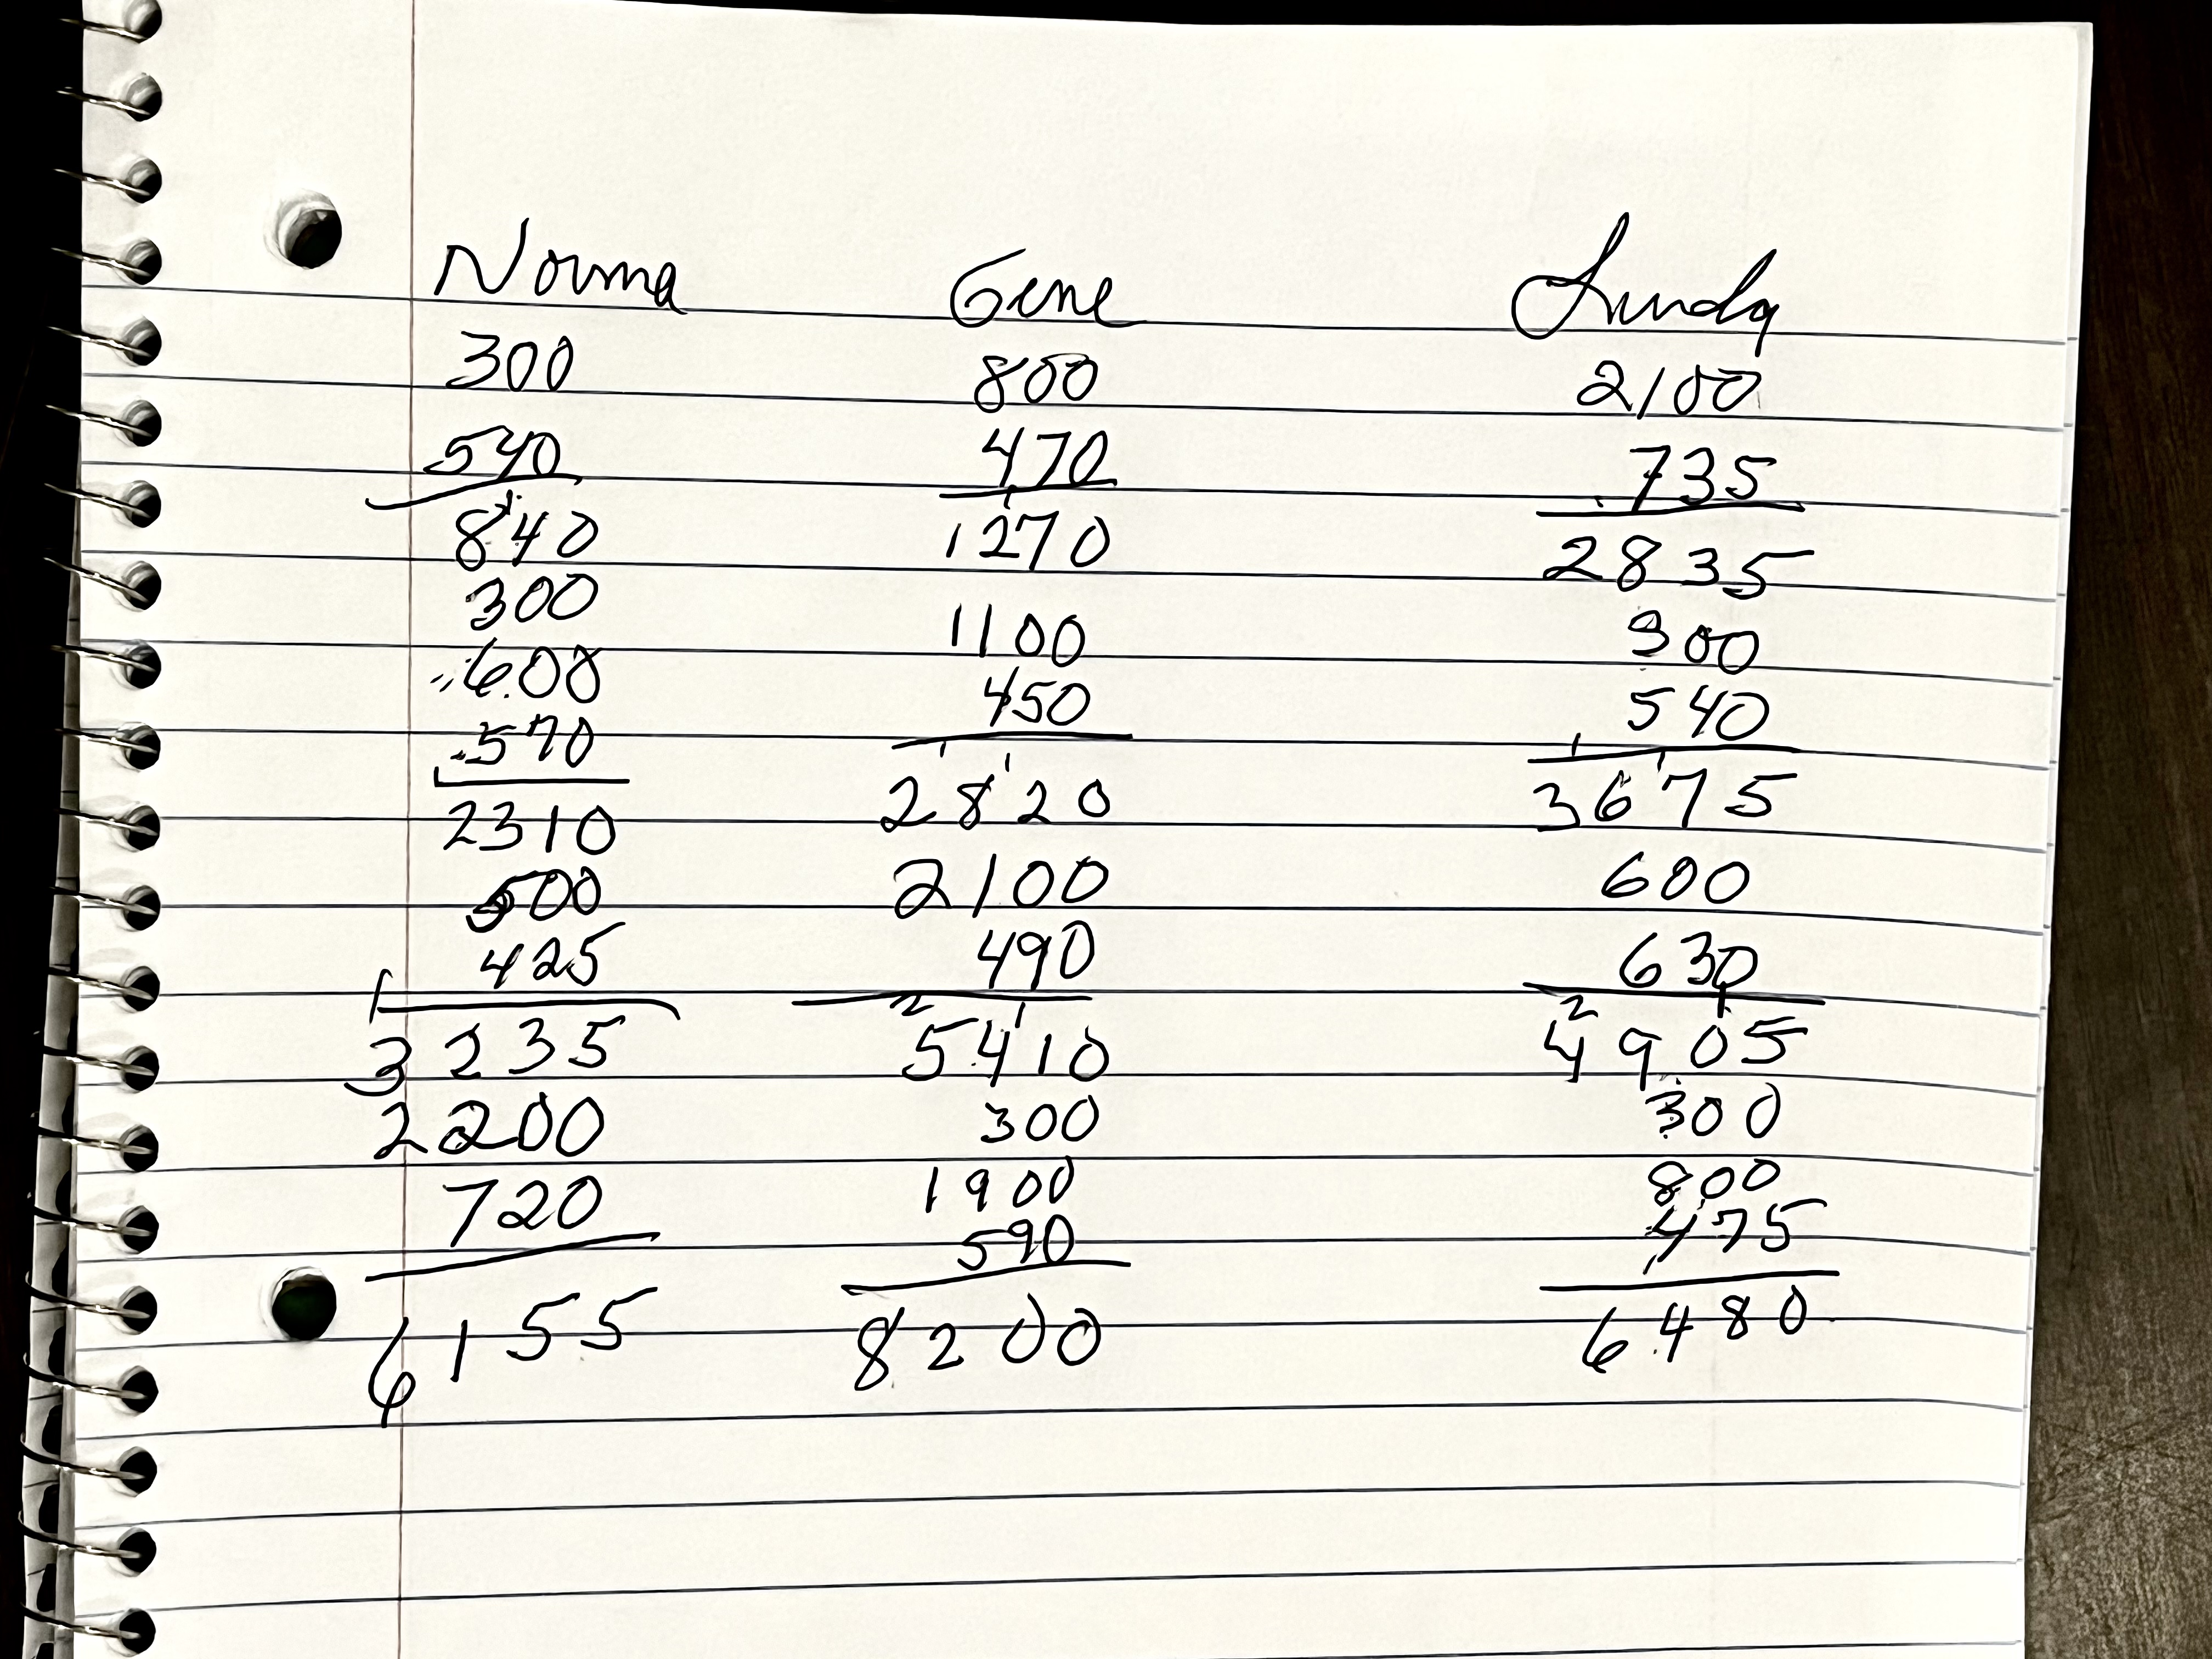 Norma
300
540
1
840
300
600
570
2310
500
425
3235
2200
720
6155
Gene
800
470
1
1270
1100
450
1 1
2820
2100
490
2 1
5410
300
1900
590
8200
Linda
2100
735
2835
300
540
1 1
3675
600
630
2 1
4905
300
800
475
6480